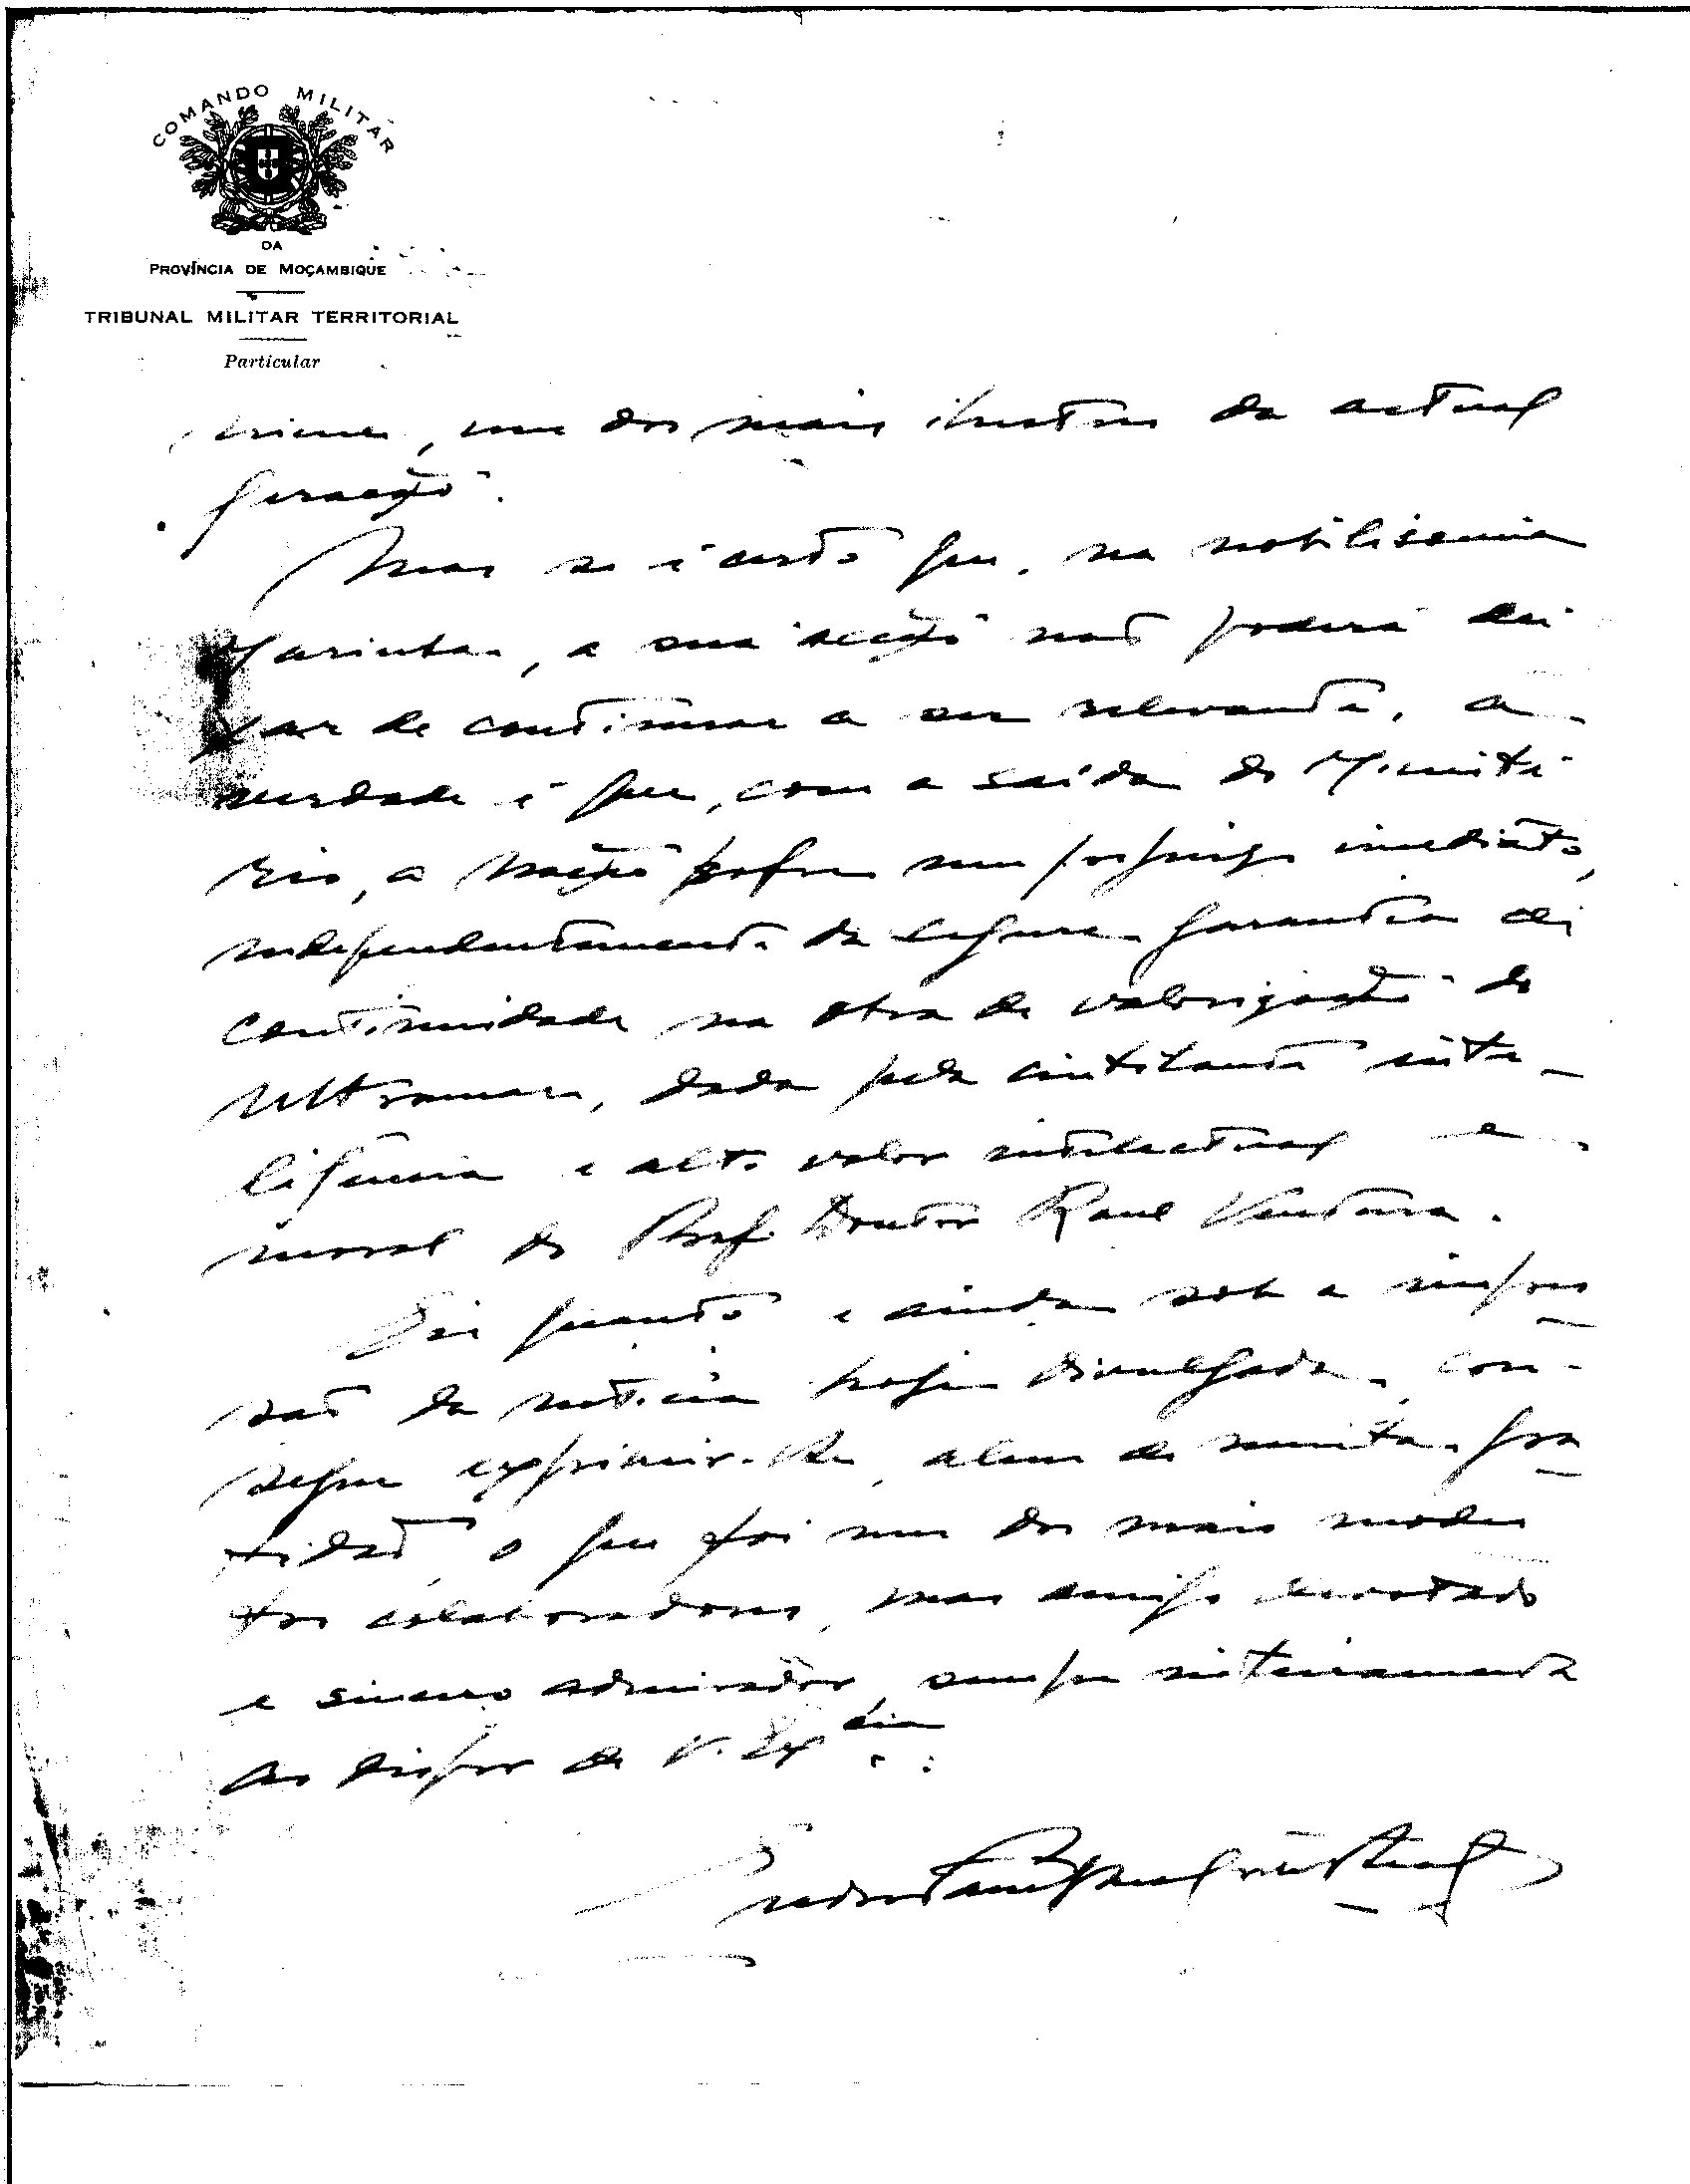 COMANDO MILITAR
DA
PROVÍNCIA DE MOÇAMBIQUE
TRIBUNAL MILITAR TERRITORIAL
Particular
um dos mais ilustres da actual
geração.
Mas se é certo que, na nobilissima
Marinha, a sua acção não poderá dei
xar de continuar a ser relevante, a
verdade é que, com a saída do Ministé
rio, a Nação sofre um prejuizo imediato,
independentemente da segura garantia de
continuidade na obra de valorização do
Ultramar, dada pela cintilante inte-
ligencia e alto valor intelectual e
moral do Prof. Doutor Raul Ventura.
Eis quanto e ainda sob a impres
são da noticia hoje divulgada, con-
segue exprimir-lhe, alem de muita gra
tidão, o que foi um dos mais modes
tos colaboradores, mas amigo devotado
e sincero admirador, sempre inteiramente
ao dispor de V. Ex.cia: